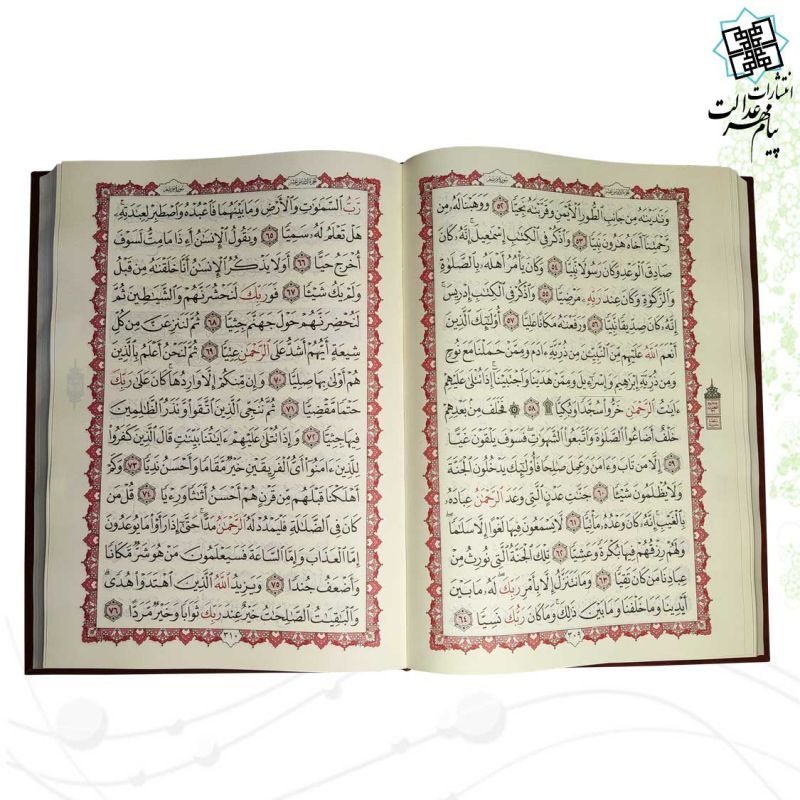 انتشارات
پیام مهر عدالت
وَنَٰدَيْنَٰهُ مِن جَانِبِ ٱلطُّورِ ٱلْأَيْمَنِ وَقَرَّبْنَٰهُ نَجِيًّا ٥٢ وَوَهَبْنَا لَهُۥ مِن
رَّحْمَتِنَآ أَخَاهُ هَٰرُونَ نَبِيًّا ٥٣ وَٱذْكُرْ فِى ٱلْكِتَٰبِ إِسْمَٰعِيلَ ۚ إِنَّهُۥ كَانَ
صَادِقَ ٱلْوَعْدِ وَكَانَ رَسُولًا نَّبِيًّا ٥٤ وَكَانَ يَأْمُرُ أَهْلَهُۥ بِٱلصَّلَوٰةِ
وَٱلزَّكَوٰةِ وَكَانَ عِندَ رَبِّهِۦ مَرْضِيًّا ٥٥ وَٱذْكُرْ فِى ٱلْكِتَٰبِ إِدْرِيسَ ۚ
إِنَّهُۥ كَانَ صِدِّيقًا نَّبِيًّا ٥٦ وَرَفَعْنَٰهُ مَكَانًا عَلِيًّا ٥٧ أُو۟لَٰٓئِكَ ٱلَّذِينَ
أَنْعَمَ ٱللَّهُ عَلَيْهِم مِّنَ ٱلنَّبِيِّۦنَ مِن ذُرِّيَّةِ ءَادَمَ وَمِمَّنْ حَمَلْنَا مَعَ نُوحٍ
وَمِن ذُرِّيَّةِ إِبْرَٰهِيمَ وَإِسْرَٰٓءِيلَ وَمِمَّنْ هَدَيْنَا وَٱجْتَبَيْنَآ ۚ إِذَا تُتْلَىٰ عَلَيْهِمْ
ءَايَٰتُ ٱلرَّحْمَٰنِ خَرُّوا۟ سُجَّدًا وَبُكِيًّا ۩ ٥٨ ۞ فَخَلَفَ مِنۢ بَعْدِهِمْ
خَلْفٌ أَضَاعُوا۟ ٱلصَّلَوٰةَ وَٱتَّبَعُوا۟ ٱلشَّهَوَٰتِ ۖ فَسَوْفَ يَلْقَوْنَ غَيًّا
٥٩ إِلَّا مَن تَابَ وَءَامَنَ وَعَمِلَ صَٰلِحًا فَأُو۟لَٰٓئِكَ يَدْخُلُونَ ٱلْجَنَّةَ
وَلَا يُظْلَمُونَ شَيْـًٔا ٦٠ جَنَّٰتِ عَدْنٍ ٱلَّتِى وَعَدَ ٱلرَّحْمَٰنُ عِبَادَهُۥ
بِٱلْغَيْبِ ۚ إِنَّهُۥ كَانَ وَعْدُهُۥ مَأْتِيًّا ٦١ لَّا يَسْمَعُونَ فِيهَا لَغْوًا إِلَّا سَلَٰمًا ۖ
وَلَهُمْ رِزْقُهُمْ فِيهَا بُكْرَةً وَعَشِيًّا ٦٢ تِلْكَ ٱلْجَنَّةُ ٱلَّتِى نُورِثُ مِنْ
عِبَادِنَا مَن كَانَ تَقِيًّا ٦٣ وَمَا نَتَنَزَّلُ إِلَّا بِأَمْرِ رَبِّكَ ۖ لَهُۥ مَا بَيْنَ
أَيْدِينَا وَمَا خَلْفَنَا وَمَا بَيْنَ ذَٰلِكَ ۚ وَمَا كَانَ رَبُّكَ نَسِيًّا ٦٤
٣٠٩
رَّبُّ ٱلسَّمَٰوَٰتِ وَٱلْأَرْضِ وَمَا بَيْنَهُمَا فَٱعْبُدْهُ وَٱصْطَبِرْ لِعِبَٰدَتِهِۦ ۚ
هَلْ تَعْلَمُ لَهُۥ سَمِيًّا ٦٥ وَيَقُولُ ٱلْإِنسَٰنُ أَءِذَا مَا مِتُّ لَسَوْفَ
أُخْرَجُ حَيًّا ٦٦ أَوَلَا يَذْكُرُ ٱلْإِنسَٰنُ أَنَّا خَلَقْنَٰهُ مِن قَبْلُ
وَلَمْ يَكُ شَيْـًٔا ٦٧ فَوَرَبِّكَ لَنَحْشُرَنَّهُمْ وَٱلشَّيَٰطِينَ ثُمَّ
لَنُحْضِرَنَّهُمْ حَوْلَ جَهَنَّمَ جِثِيًّا ٦٨ ثُمَّ لَنَنزِعَنَّ مِن كُلِّ
شِيعَةٍ أَيُّهُمْ أَشَدُّ عَلَى ٱلرَّحْمَٰنِ عِتِيًّا ٦٩ ثُمَّ لَنَحْنُ أَعْلَمُ بِٱلَّذِينَ
هُمْ أَوْلَىٰ بِهَا صِلِيًّا ٧٠ وَإِن مِّنكُمْ إِلَّا وَارِدُهَا ۚ كَانَ عَلَىٰ رَبِّكَ
حَتْمًا مَّقْضِيًّا ٧١ ثُمَّ نُنَجِّى ٱلَّذِينَ ٱتَّقَوا۟ وَّنَذَرُ ٱلظَّٰلِمِينَ
فِيهَا جِثِيًّا ٧٢ وَإِذَا تُتْلَىٰ عَلَيْهِمْ ءَايَٰتُنَا بَيِّنَٰتٍ قَالَ ٱلَّذِينَ كَفَرُوا۟
لِلَّذِينَ ءَامَنُوٓا۟ أَىُّ ٱلْفَرِيقَيْنِ خَيْرٌ مَّقَامًا وَأَحْسَنُ نَدِيًّا ٧٣ وَكَمْ
أَهْلَكْنَا قَبْلَهُم مِّن قَرْنٍ هُمْ أَحْسَنُ أَثَٰثًا وَرِءْيًا ٧٤ قُلْ مَن
كَانَ فِى ٱلضَّلَٰلَةِ فَلْيَمْدُدْ لَهُ ٱلرَّحْمَٰنُ مَدًّا ۚ حَتَّىٰٓ إِذَا رَأَوْا۟ مَا يُوعَدُونَ
إِمَّا ٱلْعَذَابَ وَإِمَّا ٱلسَّاعَةَ فَسَيَعْلَمُونَ مَنْ هُوَ شَرٌّ مَّكَانًا
وَأَضْعَفُ جُندًا ٧٥ وَيَزِيدُ ٱللَّهُ ٱلَّذِينَ ٱهْتَدَوْا۟ هُدًى ۗ
وَٱلْبَٰقِيَٰتُ ٱلصَّٰلِحَٰتُ خَيْرٌ عِندَ رَبِّكَ ثَوَابًا وَخَيْرٌ مَّرَدًّا ٧٦
٣١٠